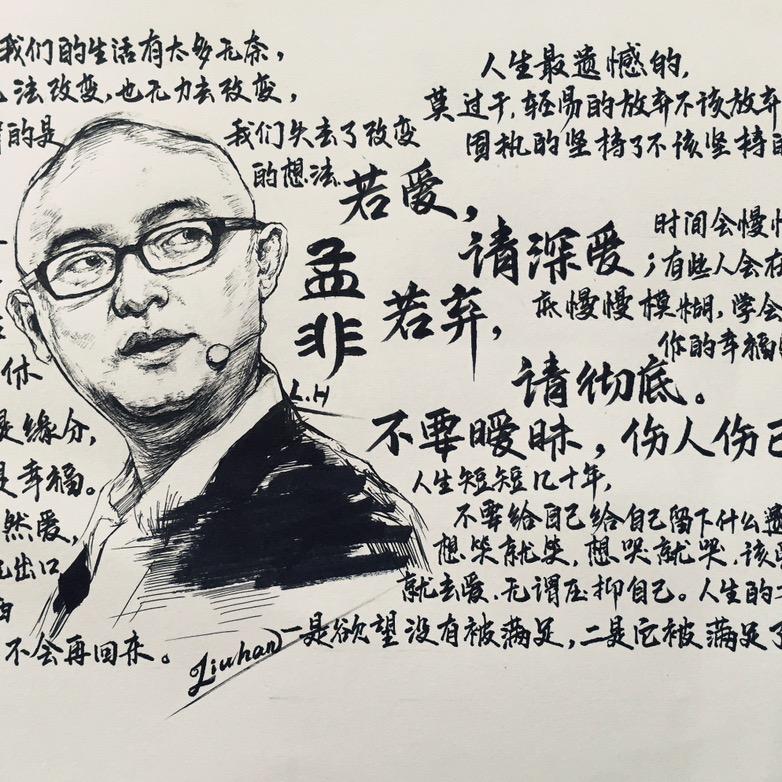 我们的生活有太多无奈，
法改变，也无力去改变，
的是
我们失去了改变
的想法
休
是缘分，
是幸福。
然爱，
出口
不会再回来。
孟
非
L.H
Liuhan
人生最遗憾的，
莫过于，轻易的放弃不该放弃
固执的坚持了不该坚持的
若爱，
请深爱；
若弃，
请彻底。
不要暧昧，伤人伤己
时间会慢慢
有些人会在
底慢慢模糊，学会
你的幸福
人生短短几十年，
不要给自己给自己留下什么遗
想笑就笑，想哭就哭，该
就去爱、无谓压抑自己。人生的二
一是欲望没有被满足，二是它被满足了